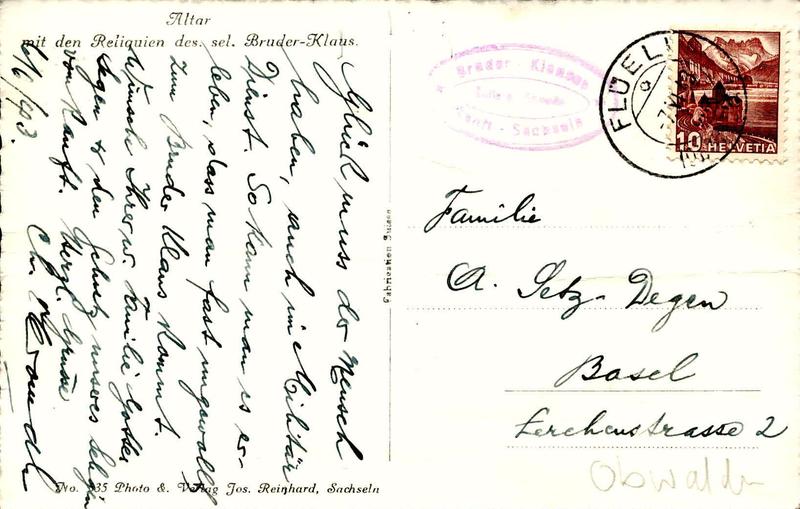 Altar
mit den Reliquien des. sel. Bruder-Klaus.
Glück muss der Mensch
haben, auch im Militär
Dienst. So kann man es er-
leben, dass man fast ungewollt
zum Bruder Klaus kommt.
Wünsche Ihrer w. Familie Gottes
Segen & den Schutz unseres Seligen
von Ranft. Herzl. Grüsse
6/6/43.
No. 35 Photo & Verlag Jos. Reinhard, Sachseln
Fabrication Suisse
Bruder - Klausen
Ranft - Sachseln
FLÜELI
10 HELVETIA
Familie
A. Setz-Degen
Basel
Lerchenstrasse 2
Obwalden